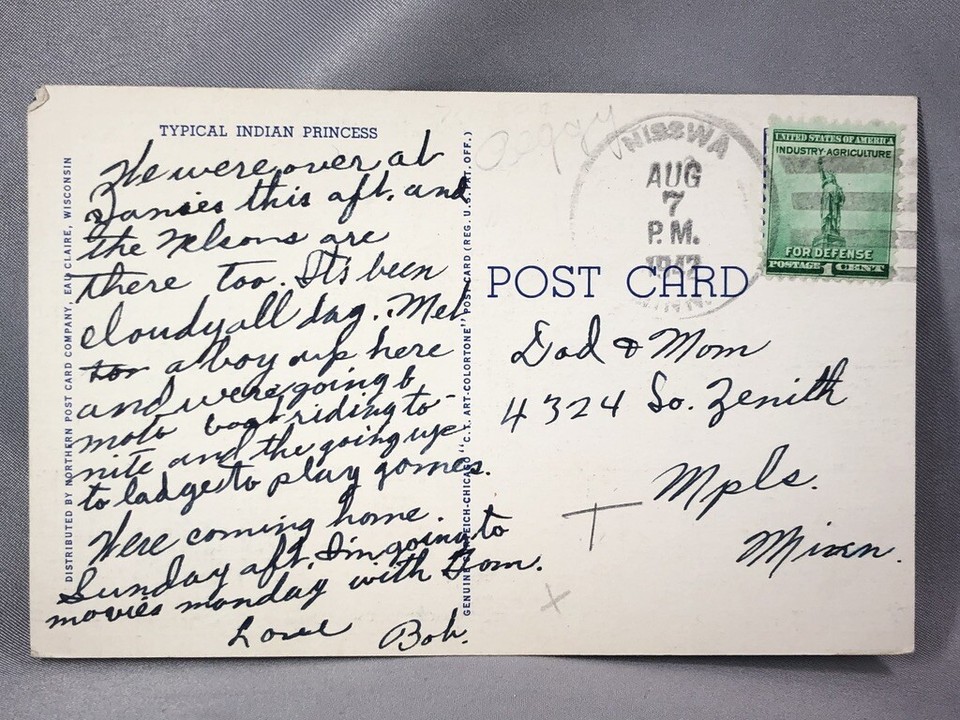 TYPICAL INDIAN PRINCESS
We were over at
Zansies this aft. and
the Nelsons are
there too. It's been
cloudy all day. Met
a boy up here
and were going
moto boat riding to-
nite and the going up
to ladge to play games.
Were coming home.
Sunday aft. I'm going to
movies monday with Tom.
Love Bob.
DISTRIBUTED BY NORTHERN POST CARD COMPANY, EAU CLAIRE, WISCONSIN
GENUINE CURTEICH-CHICAGO "C.T. ART-COLORTONE" POST CARD (REG. U.S. PAT. OFF.)
Peggy
NISSWA
AUG
7
P.M.
MINN.
UNITED STATES OF AMERICA
INDUSTRY·AGRICULTURE
FOR DEFENSE
POSTAGE 1 CENT
POST CARD
Dad & Mom
4324 So. Zenith
Mpls.
Minn.